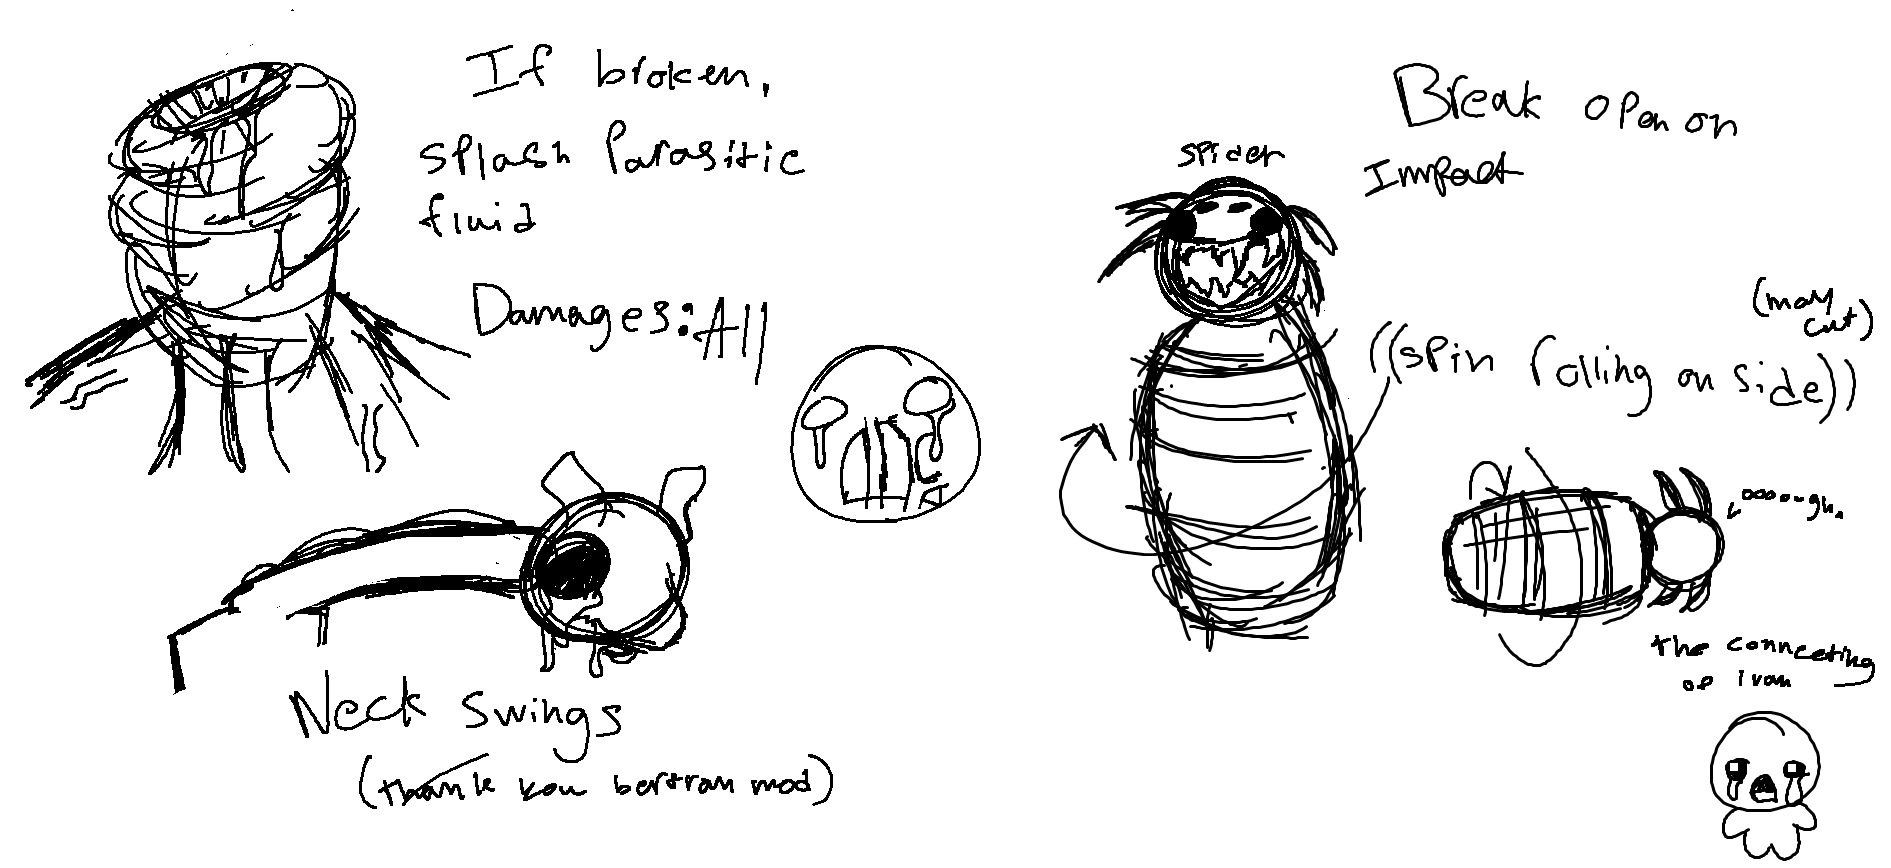 If broken,
splash Parasitic
fluid
Damages: All
Neck swings
(thank you bertran mod)
spider
Break open on
Impact
(may
cut)
((spin rolling on side))
ooooughh
the connecting
of ivan